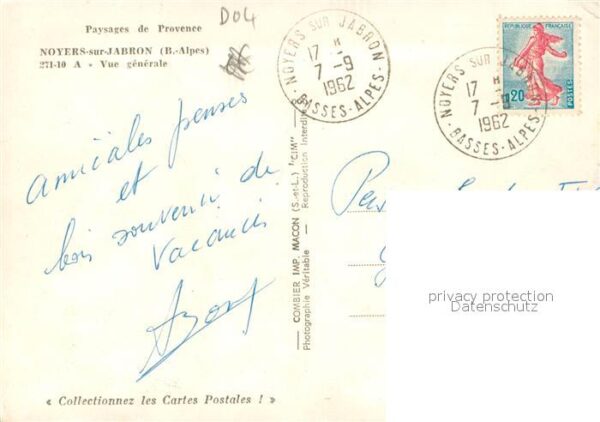 Paysages de Provence
NOYERS-sur-JABRON (B.-Alpes)
271-10 A - Vue générale
D04
NOYERS SUR JABRON
17 H
7 - 9
1962
BASSES-ALPES
REPUBLIQUE FRANÇAISE
0,20
POSTES
NOYERS SUR JABRON
17 H
7 - 9
1962
BASSES-ALPES
Amicales pensées
et
bon souvenir de
vacances
COMBIER IMP. MACON (S.-et-L.) "CIM"
Photographie Véritable - Reproduction Interdite
privacy protection
Datenschutz
« Collectionnez les Cartes Postales ! »